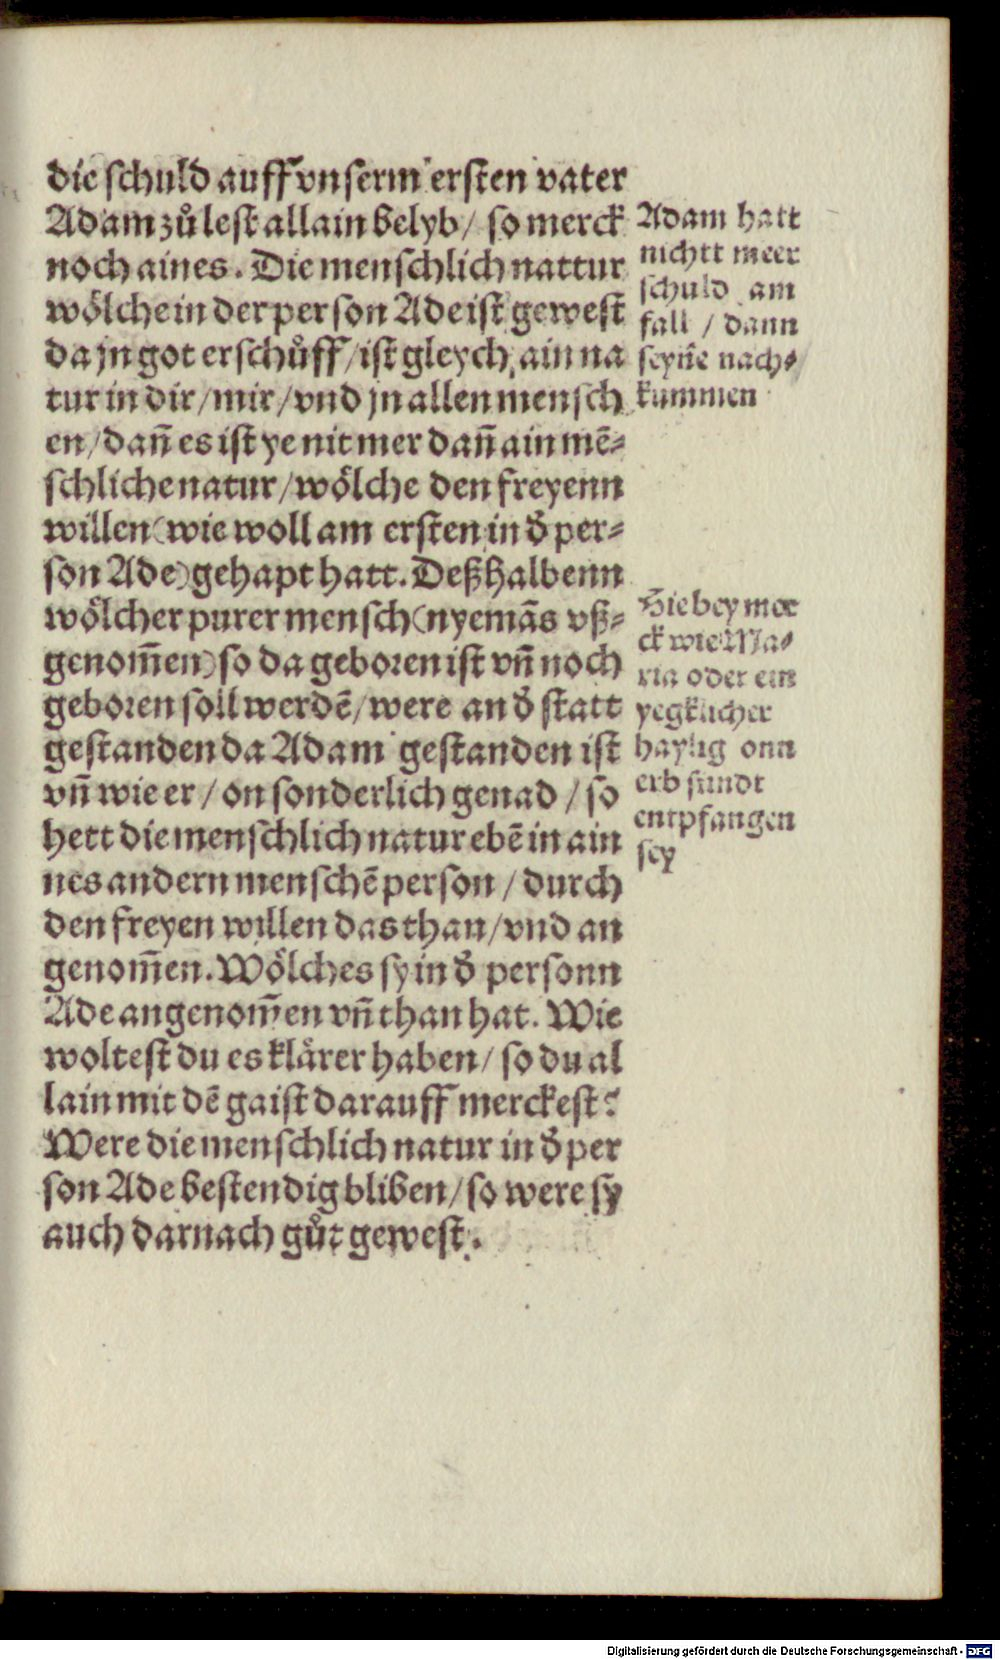 die schuld auff vnserm ersten vater
Adam zů lest allain belyb / so merck
noch aines. Die menschlich nattur
wölche in der person Ade ist gewest
da jn got erschůff / ist gleych ain na
tur in dir / mir / vnd jn allen mensch
en / dañ es ist ye nit mer dañ ain mē⸗
schliche natur / wölche den freyenn
willen (wie woll am ersten in d̄ per⸗
son Ade) gehapt hatt. Deßhalbenn
wölcher purer mensch (nyemãs vß⸗
genom̄en) so da geboren ist vñ noch
geboren soll werdē / were an d̄ statt
gestanden da Adam gestanden ist
vñ wie er / on sonderlich genad / so
hett die menschlich natur ebē in ain
nes andern menschē person / durch
den freyen willen das than / vnd an
genom̄en. Wölches sy in d̄ personn
Ade angenom̄en vñ than hat. Wie
woltest du es klärer haben / so du al
lain mit dē gaist darauff merckest?
Were die menschlich natur in d̄ per
son Ade bestendig bliben / so were sy
auch darnach gůt gewest.
Adam hatt
nichtt meer
schuld am
fall / dann
seyñe nach⸗
kummen
Hie bey mer
ck wie Ma⸗
ria oder ein
yegklicher
haylig onn
erb sündt
entpfangen
sey
Digitalisierung gefördert durch die Deutsche Forschungsgemeinschaft - DFG